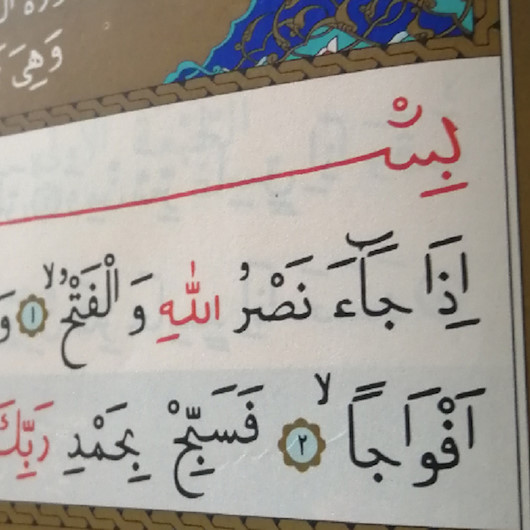 وَهِيَ
بِسْ
اِذَا جَٓاءَ نَصْرُ اللّٰهِ وَ الْفَتْحُۙ ١ وَ
اَفْوَاجًاۙ ٢ فَسَبِّحْ بِحَمْدِ رَبِّكَ